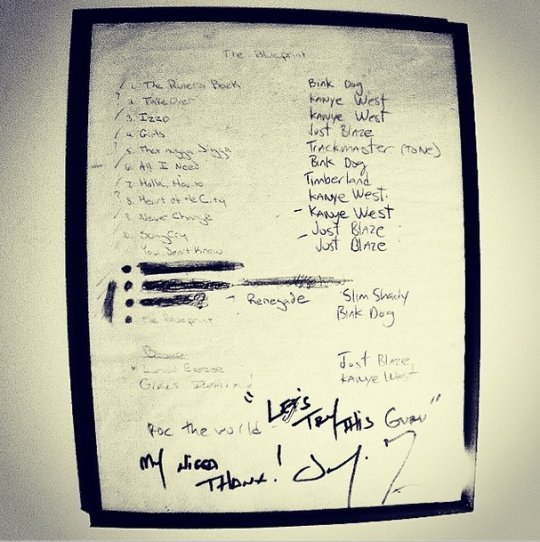 The Blueprint
1. The Rulers Back Bink Dog
2. TakeOver Kanye West
3. Izzo Kanye West
4. Girls Just Blaze
5. That nigga Jigga Trackmaster (Tone)
6. All I Need Bink Dog
7. Holla Timberland
8. Heart of the City Kanye West
9. Never Change - Kanye West
Song Cry Just Blaze
You Don't Know - Just Blaze
- Renegade Slim Shady
The Blueprint Bink Dog
Just Blaze
Girls Kanye West
"Lets Try This Guru"
Roc the world
My nigga
Thanx!